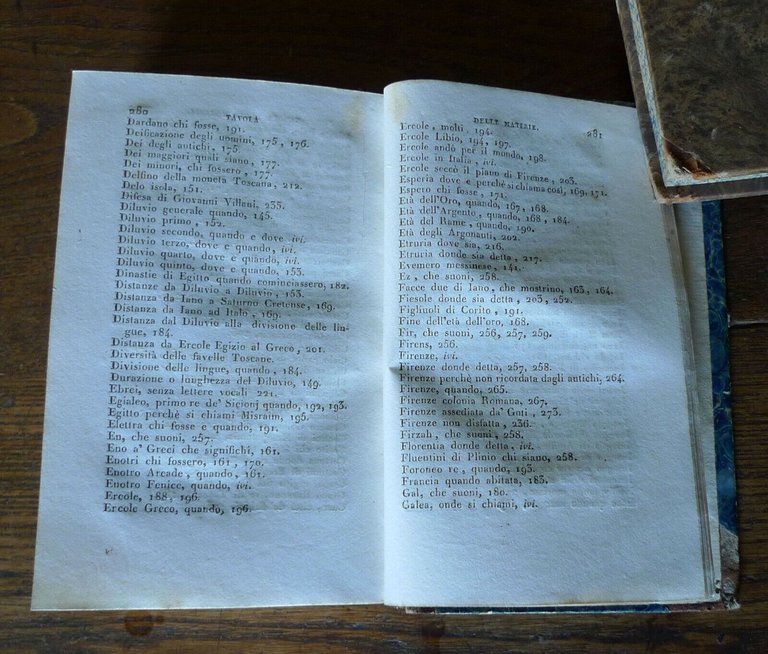 280 TAVOLA
Dardano chi fosse, 191.
Deificazione degli uomini, 175, 176.
Dei degli antichi, 175.
Dei maggiori quali siano, 177.
Dei minori, chi fossero, 177.
Delfino della moneta Toscana, 212.
Delo isola, 151.
Difesa di Giovanni Villani, 235.
Diluvio generale quando, 145.
Diluvio primo, 152.
Diluvio secondo, quando e dove ivi.
Diluvio terzo, dove e quando, ivi.
Diluvio quarto, dove e quando, ivi.
Diluvio quinto, dove e quando, 153.
Dinastie di Egitto quando cominciassero, 182.
Distanze da Diluvio a Diluvio, 153.
Distanza da Iano a Saturno Cretense, 169.
Distanza da Iano ad Italo, 169.
Distanza dal Diluvio alla divisione delle lin-
gue, 184.
Distanza da Ercole Egizio al Greco, 201.
Diversità delle favelle Toscane.
Divisione delle lingue, quando, 184.
Durazione o lunghezza del Diluvio, 149.
Ebrei, senza lettere vocali 221.
Egialeo, primo re de' Sicionj quando, 192, 193.
Egitto perchè si chiami Misraim, 195.
Elettra chi fosse e quando, 191.
En, che suoni, 257.
Eno a' Greci che significhi, 161.
Enotri chi fossero, 161, 170.
Enotro Arcade, quando, 161.
Enotro Fenice, quando, ivi.
Ercole, 188, 196.
Ercole Greco, quando, 196.
DELLE MATERIE. 281
Ercole, molti, 194.
Ercole Libio, 194, 197.
Ercole andò per il mondo, 198.
Ercole in Italia, ivi.
Ercole seccò il piano di Firenze, 203.
Esperia dove e perchè si chiama così, 169, 171.
Espero chi fosse, 171.
Età dell'Oro, quando, 167, 168.
Età dell'Argento, quando, 168, 184.
Età del Rame, quando, 190.
Età degli Argonauti, 202.
Etruria dove sia, 216.
Etruria donde sia detta, 217.
Evemero messinese, 141.
Ez, che suoni, 258.
Facce due di Iano, che mostrino, 163, 164.
Fiesole donde sia detta, 203, 252.
Figliuoli di Corito, 191.
Fine dell'età dell'oro, 168.
Fir, che suoni, 256, 257, 259.
Firens, 256.
Firenze, ivi.
Firenze donde detta, 257, 258.
Firenze perchè non ricordata dagli antichi, 264.
Firenze, quando, 265.
Firenze colonia Romana, 267.
Firenze assediata da' Goti, 273.
Firenze non disfatta, 236.
Firzah, che suoni, 258.
Florentia donde detta, ivi.
Fluentini di Plinio chi siano, 258.
Foroneo re, quando, 193.
Francia quando abitata, 183.
Gal, che suoni, 180.
Galea, onde si chiami, ivi.